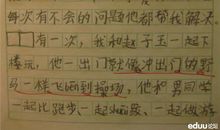 每次有不会的问题他都帮我解决。
有一次，我和赵子玉一起下
楼玩，他一出门就像冲出门的野
马一样飞面到操场，他和男同学
一起比跑步、一起一起做游
eduu论坛